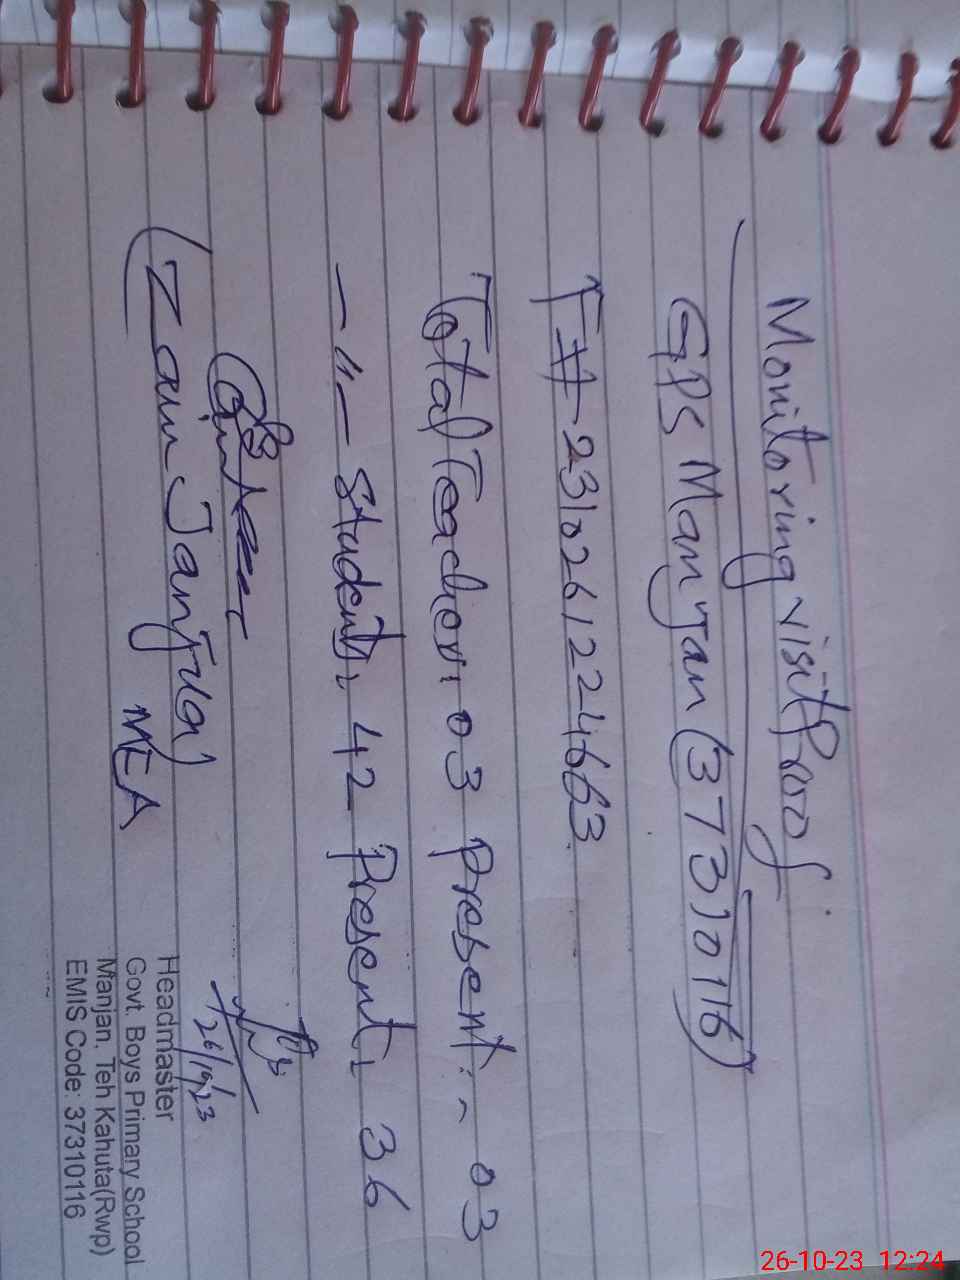 Monitoring visit Proof
GPS Manyan (37310116)
F# 2310261224663
Total Teachers 03 Present. 03
-"- Students, 42 Present, 36
(Zain Janjua)
MEA
26/10/23
Headmaster
Govt. Boys Primary School
Manjan, Teh Kahuta(Rwp)
EMIS Code: 37310116
26-10-23 12:24